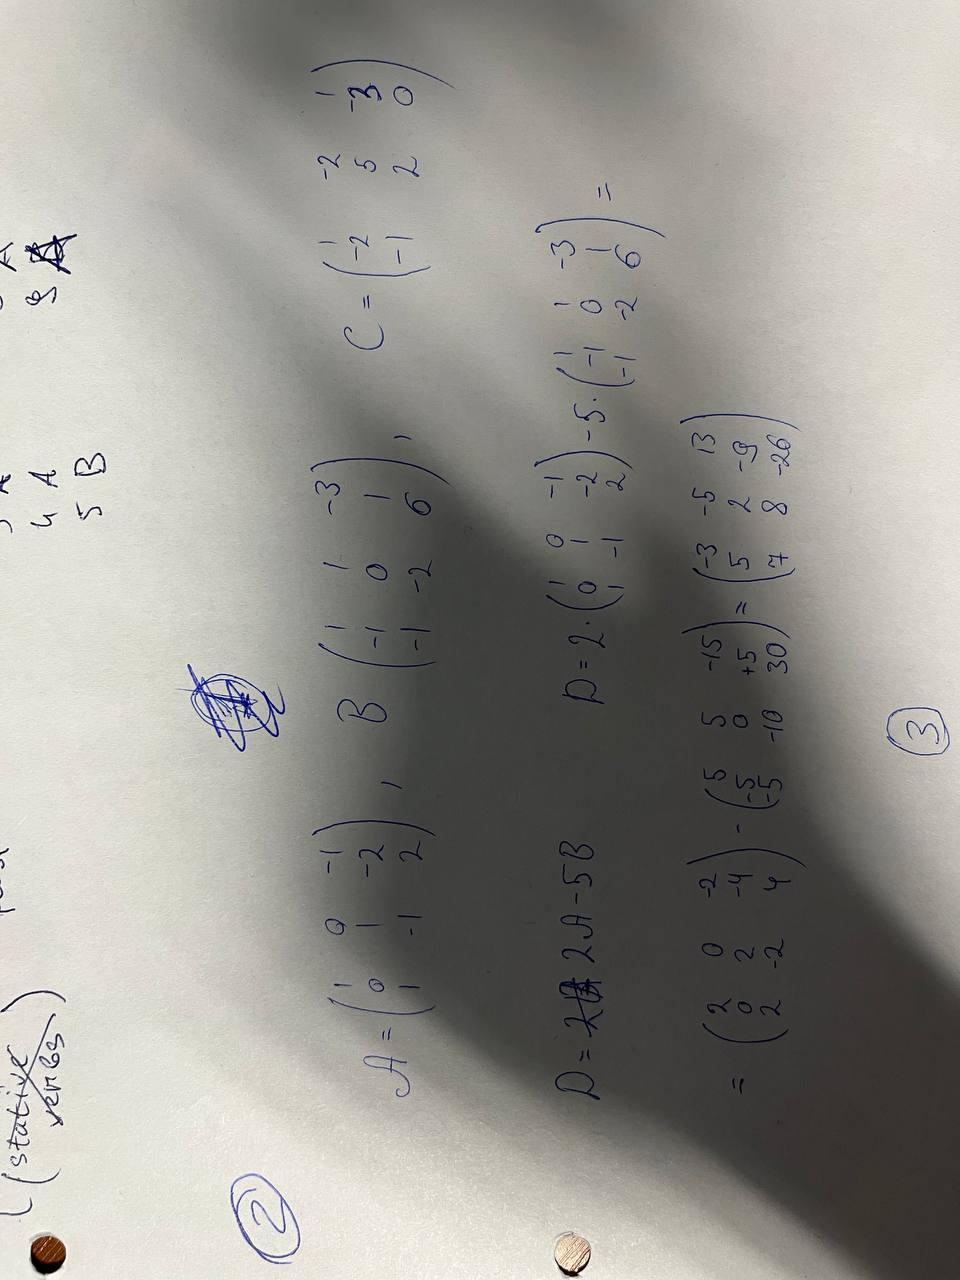 (stative
verbs)
4 A
5 B
9
2
A = ( 1 0 -1
0 1 -2
1 -1 2 ) ,
B ( 1 1 -3
-1 0 1
-1 -2 6 ) ,
C = ( 1 -2 1
-2 5 -3
-1 2 0 )
D = 2A - 5B
D = 2 · ( 1 0 -1
0 1 -2
1 -1 2 ) - 5 · ( 1 1 -3
-1 0 1
-1 -2 6 ) =
= ( 2 0 -2
0 2 -4
2 -2 4 ) - ( 5 5 -15
-5 0 +5
-5 -10 30 ) = ( -3 -5 13
5 2 -9
7 8 -26 )
3